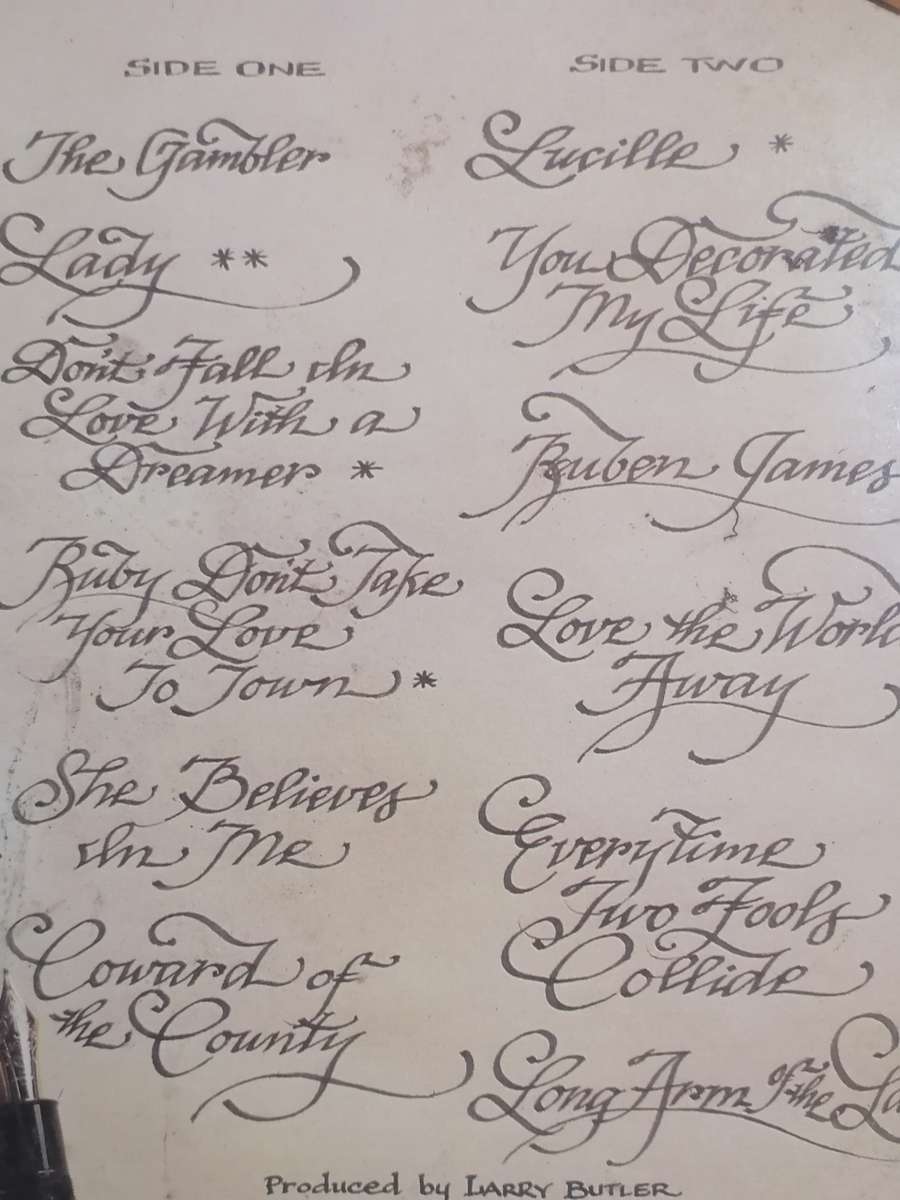 SIDE ONE
The Gambler
Lady **
Don't Fall In
Love With a
Dreamer *
Ruby Don't Take
Your Love
To Town *
She Believes
In Me
Coward of
the County
SIDE TWO
Lucille *
You Decorated
My Life
Reuben James
Love the World
Away
Everytime
Two Fools
Collide
Long Arm of the La
Produced by LARRY BUTLER